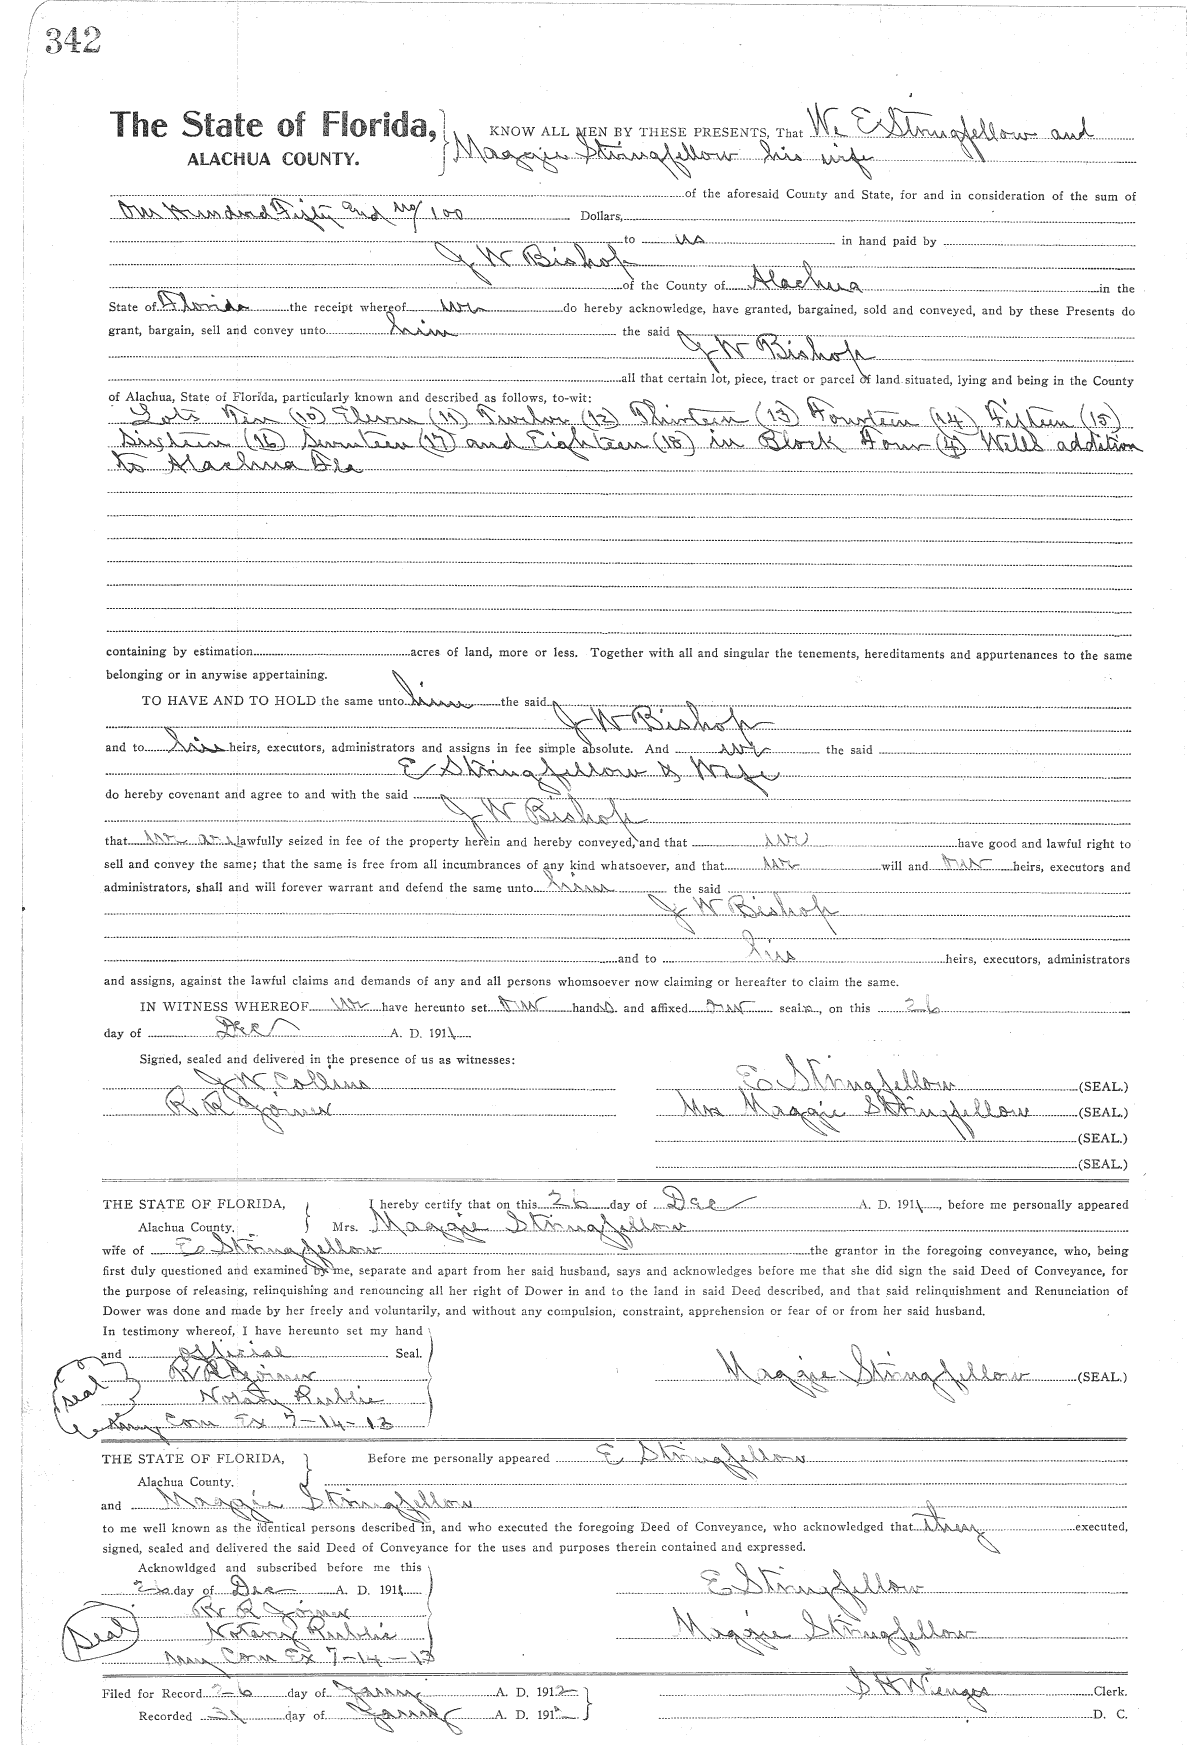 342
The State of Florida, KNOW ALL MEN BY THESE PRESENTS, That We E Stringfellow and
ALACHUA COUNTY. Maggie Stringfellow his wife
of the aforesaid County and State, for and in consideration of the sum of
One Hundred Fifty and no/100 Dollars,
to us in hand paid by
J W Bishop
of the County of Alachua in the
State of Florida the receipt whereof we do hereby acknowledge, have granted, bargained, sold and conveyed, and by these Presents do
grant, bargain, sell and convey unto him the said
J W Bishop
all that certain lot, piece, tract or parcel of land situated, lying and being in the County
of Alachua, State of Florida, particularly known and described as follows, to-wit:
Lots Ten (10) Eleven (11) Twelve (12) Thirteen (13) Fourteen (14) Fifteen (15)
Sixteen (16) Seventeen (17) and Eighteen (18) in Block Four (4) Wells addition
to Alachua Fla
containing by estimation acres of land, more or less. Together with all and singular the tenements, hereditaments and appurtenances to the same
belonging or in anywise appertaining.
TO HAVE AND TO HOLD the same unto him the said
J W Bishop
and to his heirs, executors, administrators and assigns in fee simple absolute. And we the said
E Stringfellow & Wife
do hereby covenant and agree to and with the said
J W Bishop
that we are lawfully seized in fee of the property herein and hereby conveyed, and that we have good and lawful right to
sell and convey the same; that the same is free from all incumbrances of any kind whatsoever, and that we will and our heirs, executors and
administrators, shall and will forever warrant and defend the same unto him the said
J W Bishop
and to his heirs, executors, administrators
and assigns, against the lawful claims and demands of any and all persons whomsoever now claiming or hereafter to claim the same.
IN WITNESS WHEREOF We have hereunto set our hands and affixed our seals, on this 26
day of Dec A. D. 1911
Signed, sealed and delivered in the presence of us as witnesses:
J W Collins E Stringfellow (SEAL.)
R R Joiner Mrs Maggie Stringfellow (SEAL.)
(SEAL.)
(SEAL.)
THE STATE OF FLORIDA, I hereby certify that on this 26 day of Dec A. D. 1911, before me personally appeared
Alachua County. Mrs. Maggie Stringfellow
wife of E Stringfellow the grantor in the foregoing conveyance, who, being
first duly questioned and examined by me, separate and apart from her said husband, says and acknowledges before me that she did sign the said Deed of Conveyance, for
the purpose of releasing, relinquishing and renouncing all her right of Dower in and to the land in said Deed described, and that said relinquishment and Renunciation of
Dower was done and made by her freely and voluntarily, and without any compulsion, constraint, apprehension or fear of or from her said husband.
In testimony whereof, I have hereunto set my hand
and official Seal.
R R Joiner Maggie Stringfellow (SEAL.)
seal Notary Public
my Com Ex 7-14-13
THE STATE OF FLORIDA, Before me personally appeared E Stringfellow
Alachua County.
and Maggie Stringfellow
to me well known as the identical persons described in, and who executed the foregoing Deed of Conveyance, who acknowledged that they executed,
signed, sealed and delivered the said Deed of Conveyance for the uses and purposes therein contained and expressed.
Acknowldged and subscribed before me this
26 day of Dec A. D. 1911 E Stringfellow
R R Joiner
seal Notary Public Maggie Stringfellow
my Com Ex 7-14-13
Filed for Record 26 day of Jany A. D. 1912 S H Wienges Clerk.
Recorded 31 day of Jany A. D. 1912 D. C.